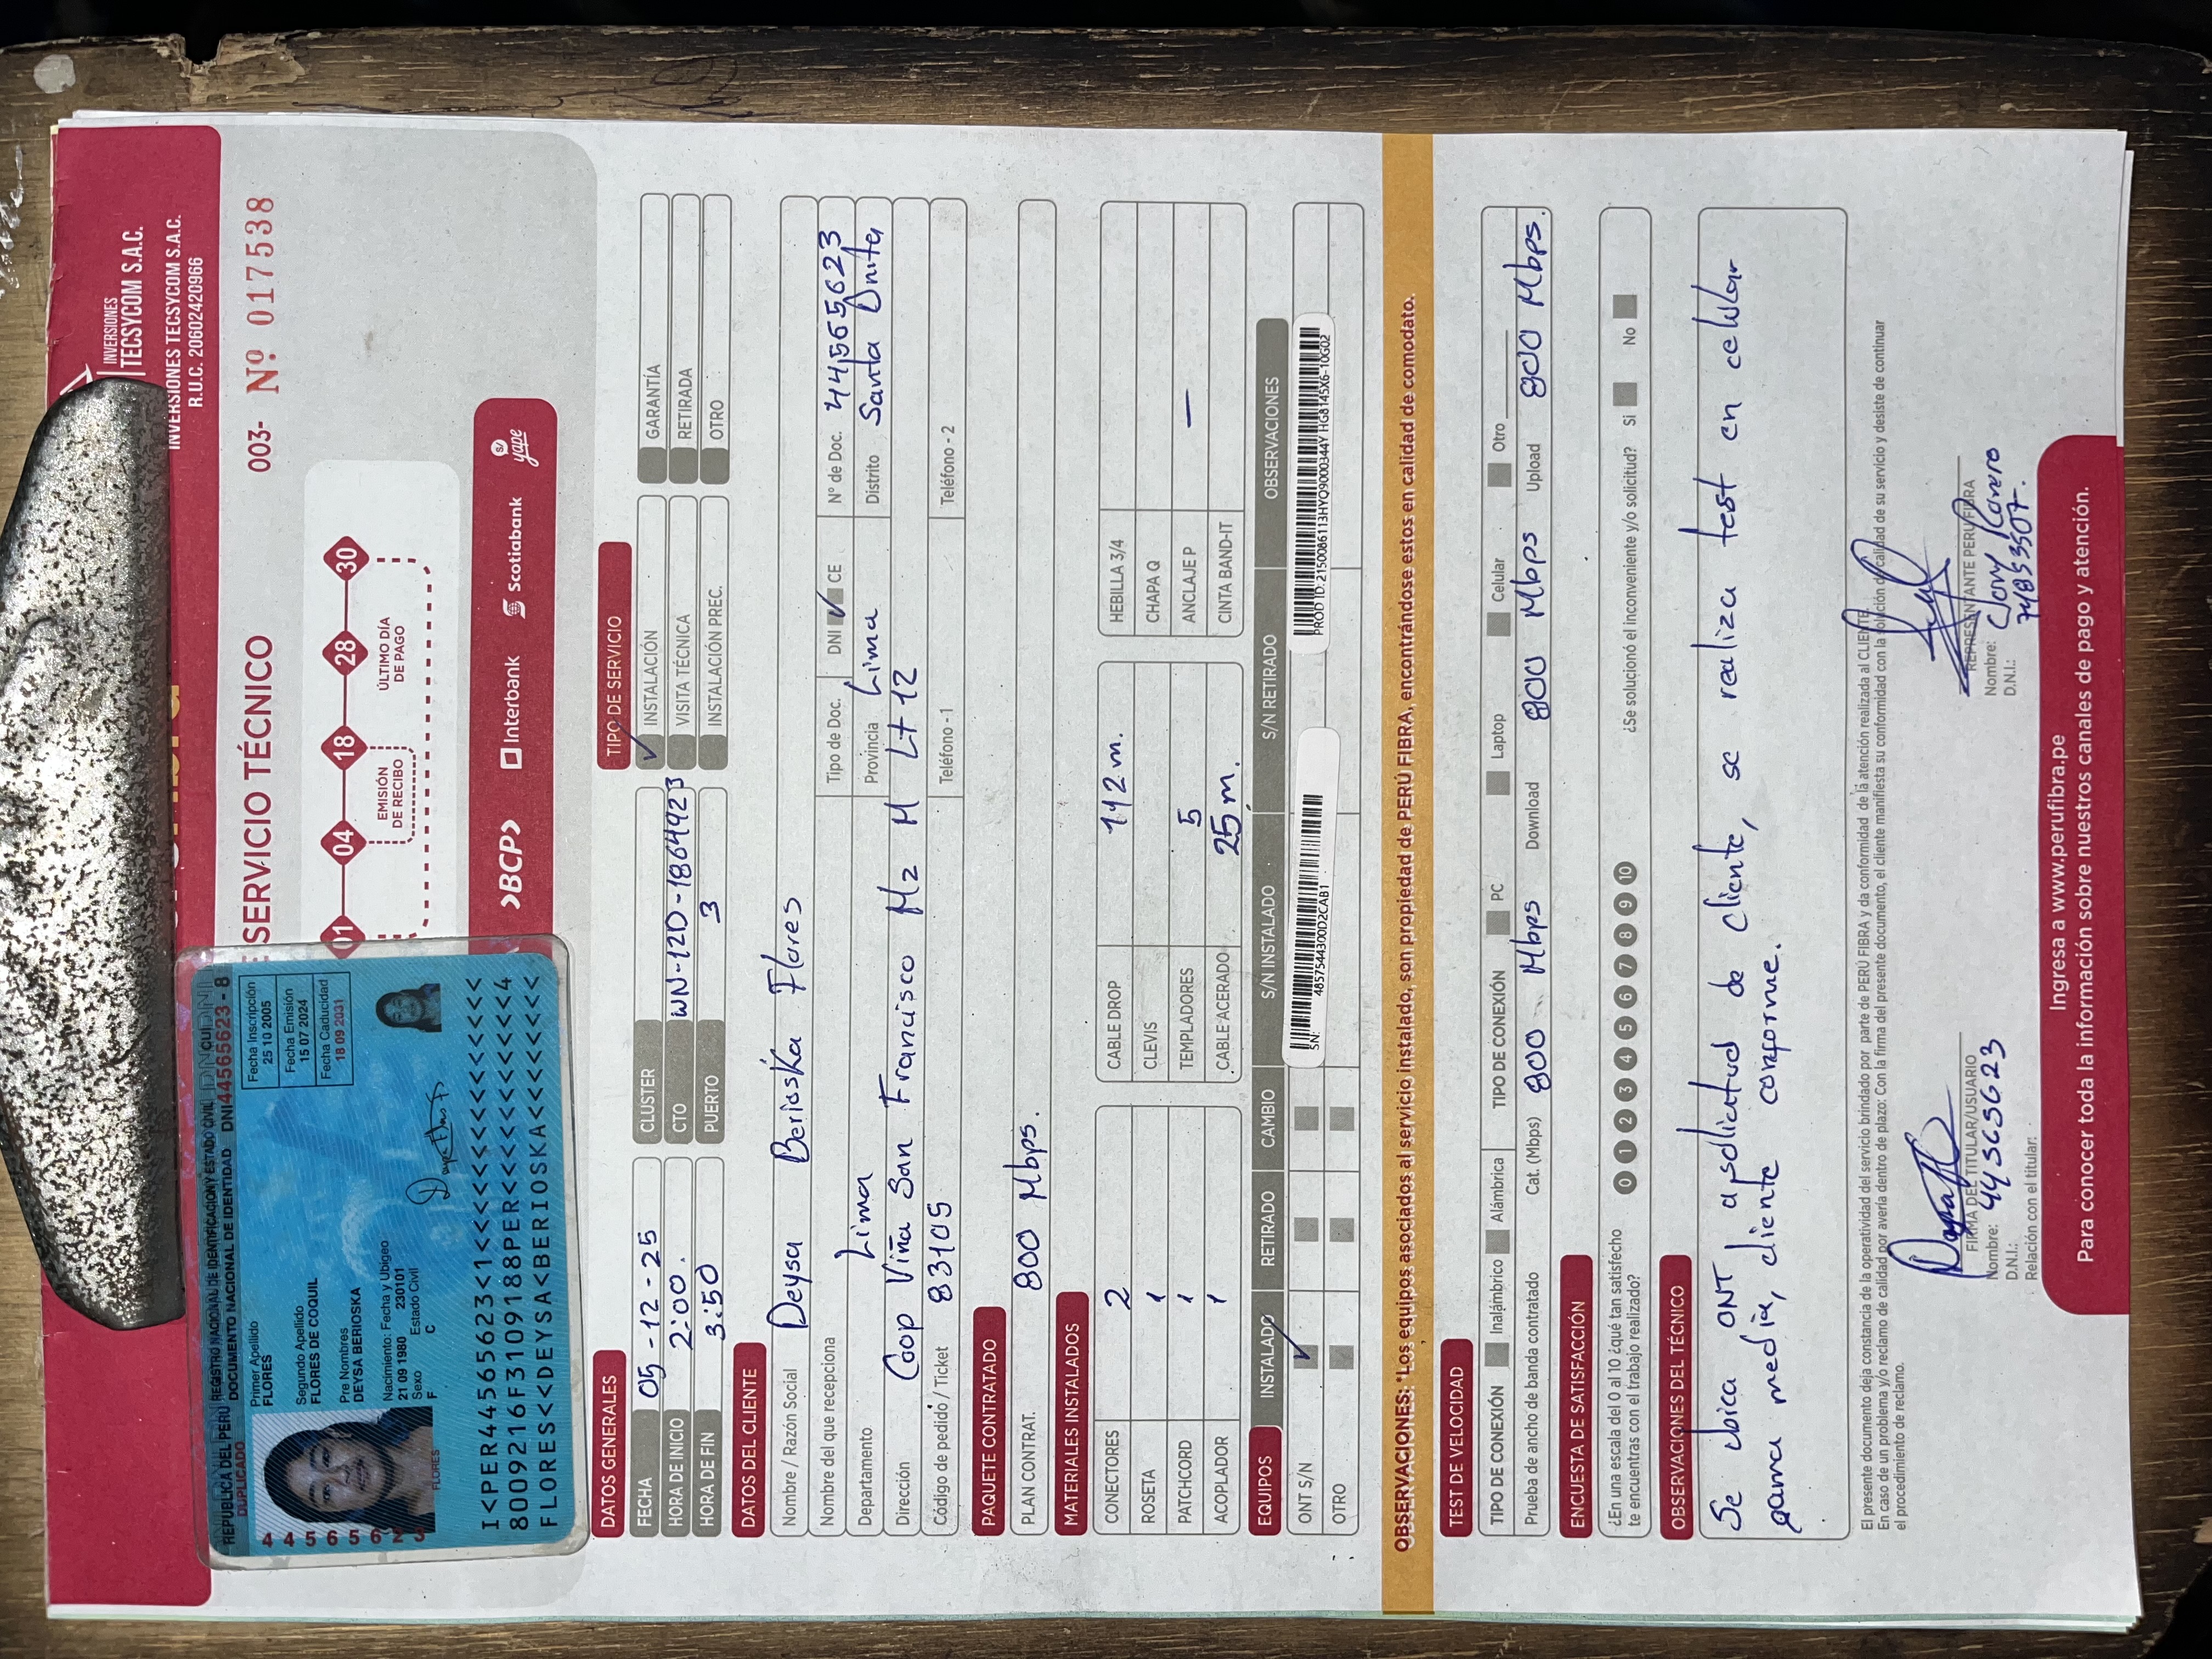 INVERSIONES
TECSYCOM S.A.C.
INVERSIONES TECSYCOM S.A.C.
R.U.C. 20602420966
SERVICIO TÉCNICO 003- Nº 017538
01 04 18 28 30
EMISIÓN DE RECIBO
ÚLTIMO DÍA DE PAGO
>BCP> Interbank Scotiabank yape
REPUBLICA DEL PERU REGISTRO NACIONAL DE IDENTIFICACION Y ESTADO CIVIL
DUPLICADO DOCUMENTO NACIONAL DE IDENTIDAD DNI 44565623 - 8
Primer Apellido
FLORES
Segundo Apellido
FLORES DE COQUIL
Pre Nombres
DEYSA BERIOSKA
Nacimiento: Fecha y Ubigeo
21 09 1980 230101
Sexo Estado Civil
F C
Fecha Inscripción
25 10 2005
Fecha Emisión
15 07 2024
Fecha Caducidad
18 09 2031
44565623
FLORES
I<PER44565623<1<<<<<<<<<<<<<<<
8009216F3109188PER<<<<<<<<<<<4
FLORES<<DEYSA<BERIOSKA<<<<<<<<
DATOS GENERALES TIPO DE SERVICIO
FECHA 05-12-25 CLUSTER ✓ INSTALACIÓN GARANTÍA
HORA DE INICIO 2:00. CTO WN-12D-1864923 VISITA TÉCNICA RETIRADA
HORA DE FIN 3:50 PUERTO 3 INSTALACIÓN PREC. OTRO
DATOS DEL CLIENTE
Nombre / Razón Social Deysa Berioska Flores
Nombre del que recepciona Tipo de Doc. DNI ✓ CE N° de Doc. 44565623
Departamento Lima Provincia Lima Distrito Santa Anita
Dirección Coop Viña San Francisco Mz M Lt 12
Código de pedido / Ticket 83105 Teléfono -1 Teléfono - 2
PAQUETE CONTRATADO
PLAN CONTRAT. 800 Mbps.
MATERIALES INSTALADOS
CONECTORES 2 CABLE DROP 112 m. HEBILLA 3/4
ROSETA 1 CLEVIS CHAPA Q
PATCHCORD 1 TEMPLADORES 5 ANCLAJE P —
ACOPLADOR 1 CABLE ACERADO 25 m. CINTA BAND-IT
EQUIPOS INSTALADO RETIRADO CAMBIO S/N INSTALADO S/N RETIRADO OBSERVACIONES
ONT S/N ✓ SN: 485754430​0D2CAB1 PROD ID: 2150086113HYQ9000344Y HG8145X6-10G02
OTRO
OBSERVACIONES: *Los equipos asociados al servicio instalado, son propiedad de PERÚ FIBRA, encontrándose estos en calidad de comodato.
TEST DE VELOCIDAD
TIPO DE CONEXIÓN Inalámbrico Alámbrica TIPO DE CONEXIÓN PC Laptop Celular Otro
Prueba de ancho de banda contratado Cat. (Mbps) 800 Mbps Download 800 Mbps Upload 800 Mbps.
ENCUESTA DE SATISFACCIÓN
¿En una escala del 0 al 10 ¿qué tan satisfecho te encuentras con el trabajo realizado? 0 1 2 3 4 5 6 7 8 9 10 ¿Se solucionó el inconveniente y/o solicitud? Si No
OBSERVACIONES DEL TÉCNICO
Se ubica ONT a solicitud de cliente, se realiza test en celular
gama media, cliente conforme.
El presente documento deja constancia de la operatividad del servicio brindado por parte de PERÚ FIBRA y da conformidad de la atención realizada al CLIENTE.
En caso de un problema y/o reclamo de calidad por avería dentro de plazo: Con la firma del presente documento, el cliente manifiesta su conformidad con la solución de calidad de su servicio y desiste de continuar
el procedimiento de reclamo.
FIRMA DEL TITULAR/USUARIO REPRESENTANTE PERU FIBRA
Nombre: Nombre: Jony
D.N.I.: 44565623 D.N.I.: 74853507.
Relación con el titular:
Ingresa a www.perufibra.pe
Para conocer toda la información sobre nuestros canales de pago y atención.